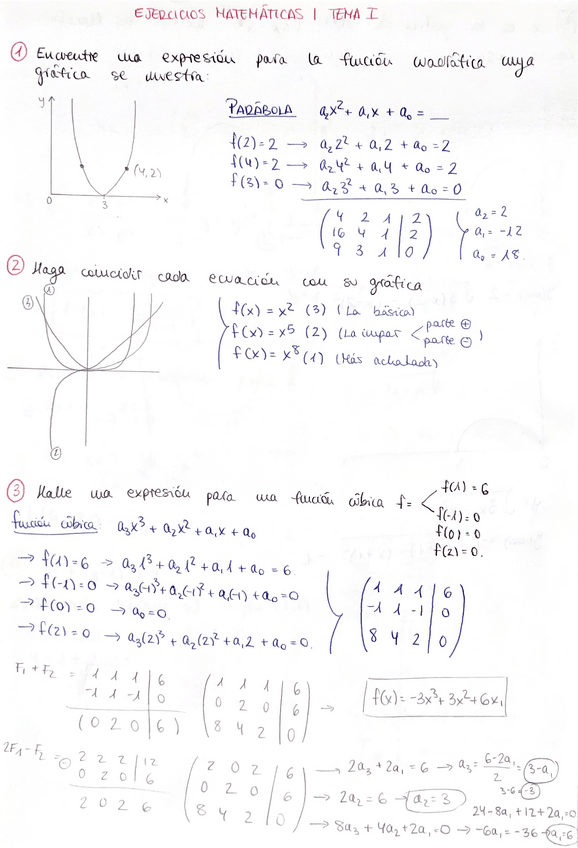 EJERCICIOS MATEMÁTICAS I TEMA I
① Encuentre una expresión para la función cuadrática cuya
gráfica se muestra:
y
(4,2)
0
3
x
PARÁBOLA a₂x² + a₁x + a₀ = __
f(2)=2 → a₂2² + a₁2 + a₀ = 2
f(4)=2 → a₂4² + a₁4 + a₀ = 2
f(3)=0 → a₂3² + a₁3 + a₀ = 0
4 2 1 | 2
16 4 1 | 2
9 3 1 | 0
a₂ = 2
a₁ = -12
a₀ = 18.
② Haga coincidir cada ecuación con su gráfica
③
①
②
f(x) = x² (3) (La básica)
f(x) = x⁵ (2) (La impar < parte ⊕ parte ⊖ )
f(x) = x⁸ (1) (Más achatada)
③ Halle una expresión para una función cúbica f=
f(1) = 6
f(-1) = 0
f(0) = 0
f(2) = 0.
función cúbica: a₃x³ + a₂x² + a₁x + a₀
→ f(1) = 6 → a₃1³ + a₂1² + a₁1 + a₀ = 6.
→ f(-1) = 0 → a₃(-1)³ + a₂(-1)² + a₁(-1) + a₀ = 0
→ f(0) = 0 → a₀ = 0.
→ f(2) = 0 → a₃(2)³ + a₂(2)² + a₁2 + a₀ = 0.
1 1 1 | 6
-1 1 -1 | 0
8 4 2 | 0
F₁ + F₂ = 1 1 1 | 6
-1 1 -1 | 0
(0 2 0 | 6)
1 1 1 | 6
0 2 0 | 6
8 4 2 | 0
→ f(x) = -3x³ + 3x² + 6x,
2F₁ - F₂ = 2 2 2 | 12
⊖ 0 2 0 | 6
2 0 2 6
2 0 2 | 6
0 2 0 | 6
8 4 2 | 0
→ 2a₃ + 2a₁ = 6 → a₃ = 6-2a₁ / 2 = 3-a₁
3-6 = -3
→ 2a₂ = 6 → a₂ = 3
24 - 8a₁ + 12 + 2a₁ = 0
→ 8a₃ + 4a₂ + 2a₁ = 0 → -6a₁ = -36 → a₁ = 6